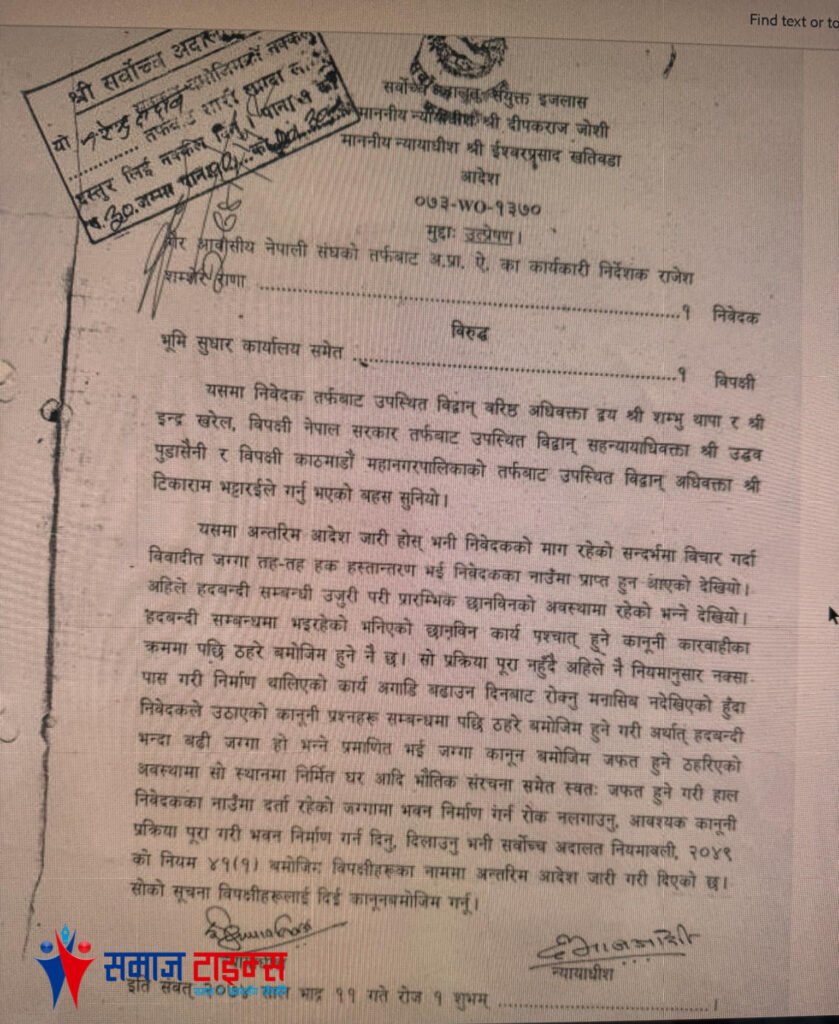 Find text or to
श्री सर्वोच्च अदाल
यो
तर्फबाट
दस्तुर लिई नक्कल दिनु।
सर्वोच्च अदालत, संयुक्त इजलास
माननीय न्यायाधीश श्री दीपकराज जोशी
माननीय न्यायाधीश श्री ईश्वरप्रसाद खतिवडा
आदेश
०७३-WO-१३७०
मुद्दाः उत्प्रेषण।
गैर आवासीय नेपाली संघको तर्फबाट अ.प्रा. ऐ. का कार्यकारी निर्देशक राजेश
शम्शेर राणा ........................................१ निवेदक
विरुद्ध
भूमि सुधार कार्यालय समेत ........................................१ विपक्षी
यसमा निवेदक तर्फबाट उपस्थित विद्वान् वरिष्ठ अधिवक्ता द्वय श्री शम्भु थापा र श्री
इन्द्र खरेल, विपक्षी नेपाल सरकार तर्फबाट उपस्थित विद्वान् सहन्यायाधिवक्ता श्री उद्धव
पुडासैनी र विपक्षी काठमाडौं महानगरपालिकाको तर्फबाट उपस्थित विद्वान् अधिवक्ता श्री
टिकाराम भट्टराईले गर्नु भएको बहस सुनियो।
यसमा अन्तरिम आदेश जारी होस् भनी निवेदकको माग रहेको सन्दर्भमा विचार गर्दा
विवादीत जग्गा तह-तह हक हस्तान्तरण भई निवेदकका नाउँमा प्राप्त हुन आएको देखियो।
अहिले हदबन्दी सम्बन्धी उजुरी परी प्रारम्भिक छानविनको अवस्थामा रहेको भन्ने देखियो।
हदबन्दी सम्बन्धमा भइरहेको भनिएको छानविन कार्य पश्चात् हुने कानूनी कारवाहीका
क्रममा पछि ठहरे बमोजिम हुने नै छ। सो प्रक्रिया पूरा नहुँदै अहिले नै नियमानुसार नक्सा
पास गरी निर्माण थालिएको कार्य अगाडि बढाउन दिनबाट रोक्नु मनासिब नदेखिएको हुँदा
निवेदकले उठाएको कानूनी प्रश्नहरू सम्बन्धमा पछि ठहरे बमोजिम हुने गरी अर्थात् हदबन्दी
भन्दा बढी जग्गा हो भन्ने प्रमाणित भई जग्गा कानून बमोजिम जफत हुने ठहरिएको
अवस्थामा सो स्थानमा निर्मित घर आदि भौतिक संरचना समेत स्वतः जफत हुने गरी हाल
निवेदकका नाउँमा दर्ता रहेको जग्गामा भवन निर्माण गर्न रोक नलगाउनु, आवश्यक कानूनी
प्रक्रिया पूरा गरी भवन निर्माण गर्न दिनु, दिलाउनु भनी सर्वोच्च अदालत नियमावली, २०४९
को नियम ४१(१) बमोजिम विपक्षीहरूका नाममा अन्तरिम आदेश जारी गरी दिएको छ।
सोको सूचना विपक्षीहरूलाई दिई कानूनबमोजिम गर्नू।
न्यायाधीश
समाज टाइम्स
इति संवत् २०७४ साल भाद्र ११ गते रोज १ शुभम् ........................................।